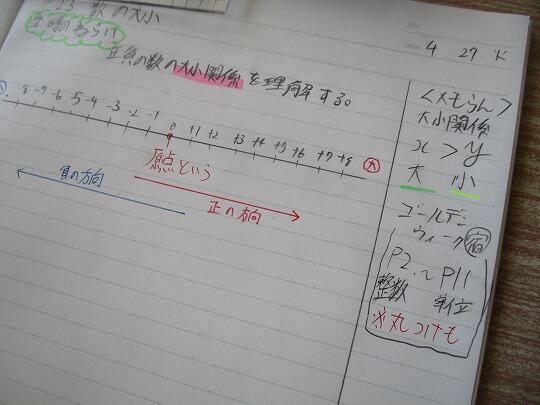 数の大小
本時のねらい
正負の数の大小関係を理解する。
-8 -7 -6 -5 -4 -3 -2 -1 0 +1 +2 +3 +4 +5 +6 +7 +8 大
原点という
負の方向
正の方向
No.
Date 4 27 K
<メモらん>
大小関係
x > y
大 小
ゴールデン
ウィーク 宿
P2.~P11
整数 単位
※丸つけも